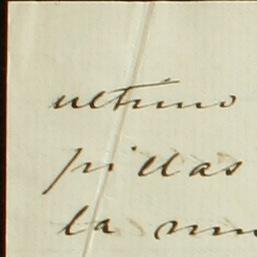 ultimo
pillas
la